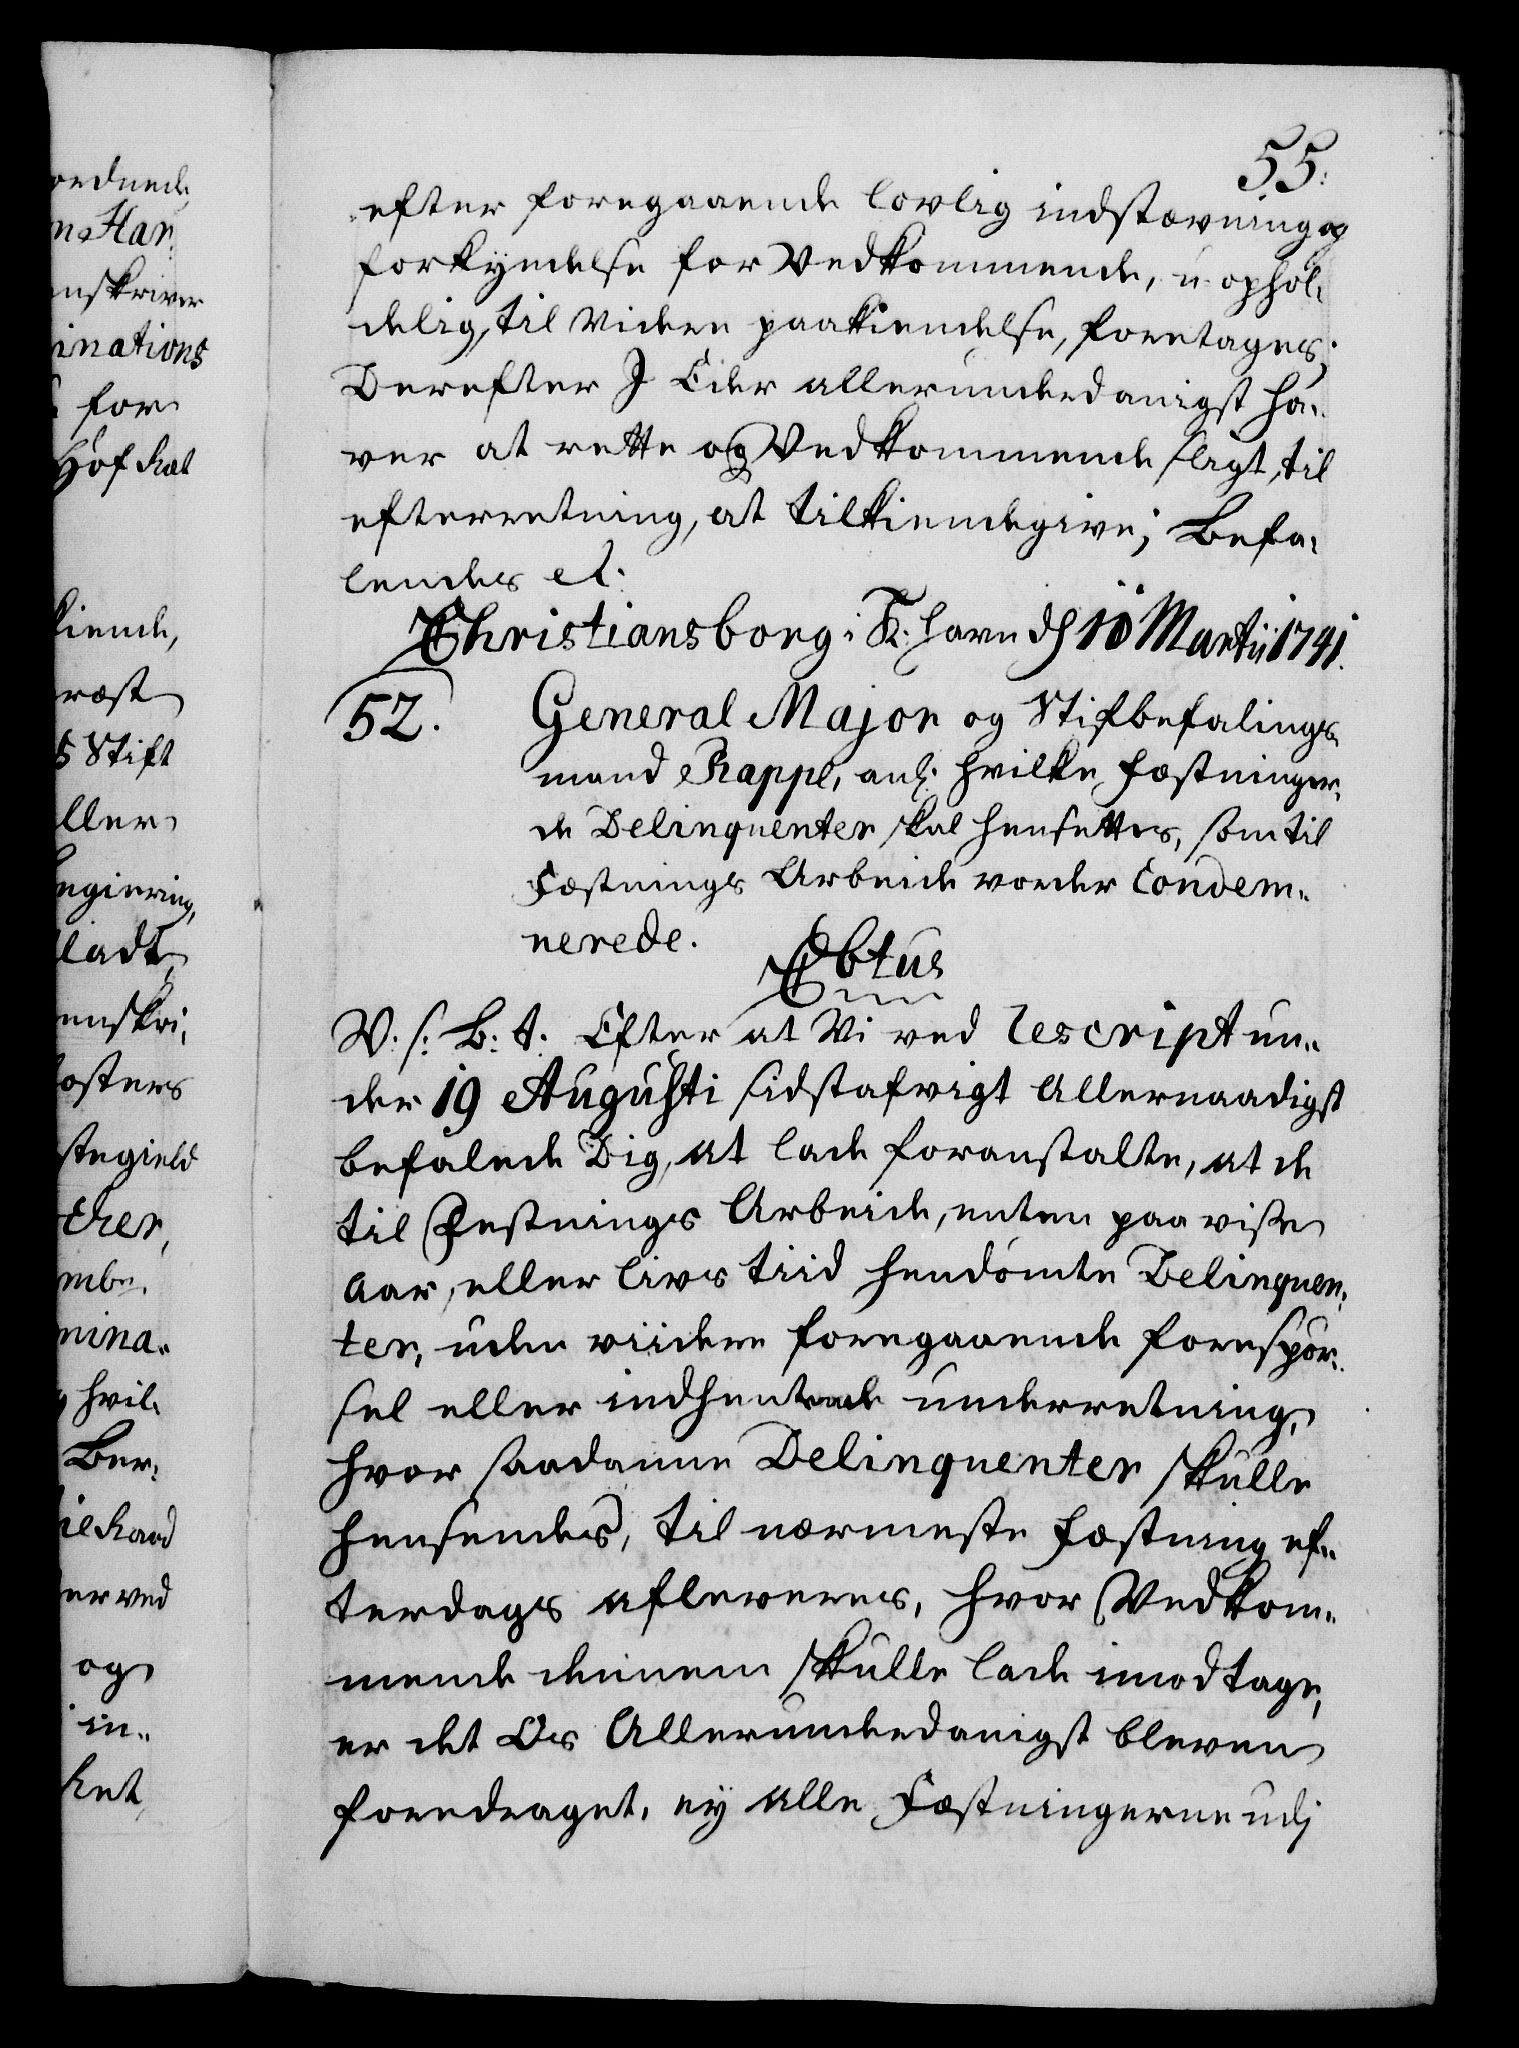 55.
efter foregaaende lovlig indstævning og
forkyndelse for Vedkommende, u-ophol-
delig, til videre paakiendelse, foretages;
Derefter I Eder allerunderdanigst ha-
ver at rette og Vedkommende sligt, til
efterretning, at tilkiendegive; Befa-
lendes etc.
Christiansborg i K:havn d. 10 Martii 1741.
52. General Major og Stifbefalings
mand Rappe, anl. hvilke Fæstninger
de Delinquenter skal hensettes, som til
Fæstnings Arbeide vorder Condem-
nerede.
C 6tus
V. s: B: t. Efter at Vi ved Rescript un-
der 19 Augusti sidstafvigt Allernaadigst
befalede Dig, at lade foranstalte, at de
til Festnings Arbeide, enten paa visse
Aar, eller Livs tiid hendømte Delinquen-
ter, uden viidere foregaaende forespør-
sel eller indhentende underretning,
hvor saadanne Delinquenter skulle
hensendes, til nærmeste Fæstning ef-
terdags afleveres, hvor Vedkom-
mende dennem skulle lade imodtage,
er det Os Allerunderdanigst bleven
foredraget, ey alle Fæstningerne udj
ordnede
Har
nskriver
inations
for
Hof Ræt
kiende,
ræst
Stift
ller
egiering,
ladt
enskri-
osters
stegield
cher,
mbr.
mina-
hvil-
Ber-
er ved
og
in-
ket